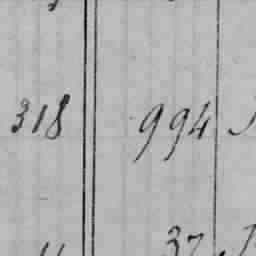 318 994
37